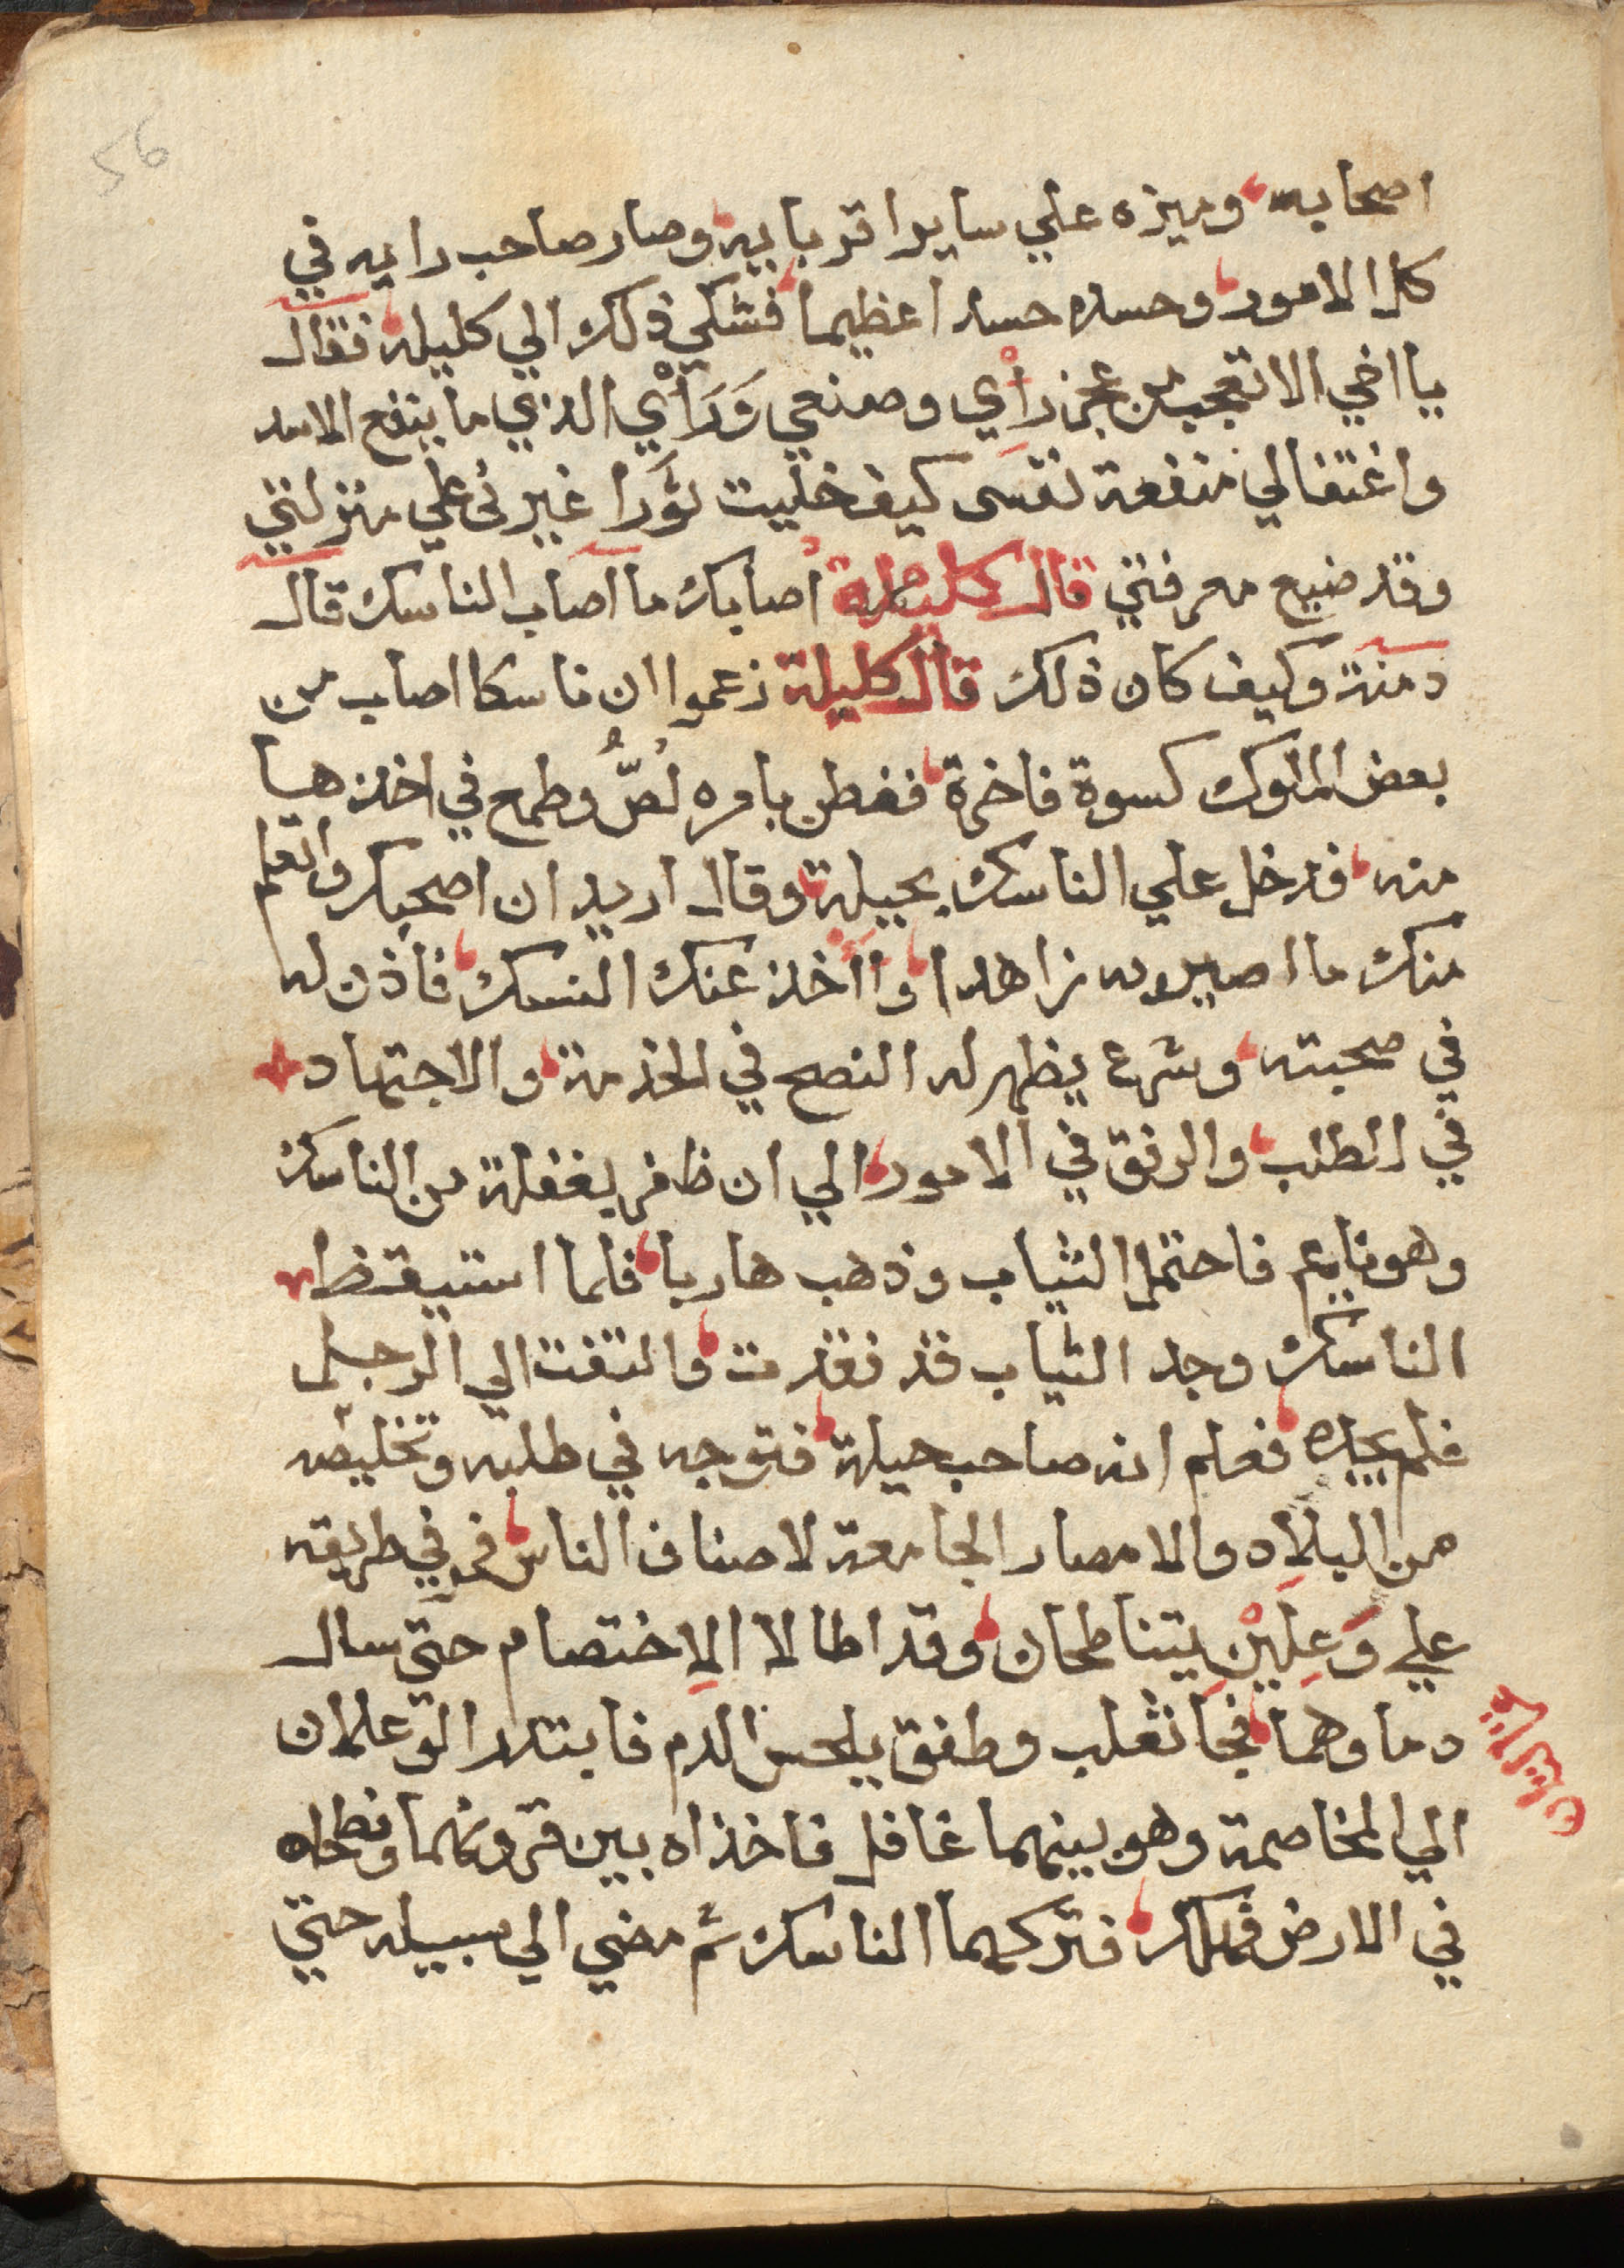 56
اصحابه وميزه علي ساير اقربايه وصار صاحب رايه في
كل الامور وحسده حسدا عظيما فشكي ذلك الي كليله فقال
يا اخي الا تعجب من عجز رأي وصنعي وَرَأْي الذي ما ينفع الاسد
واغتفالي منفعة نفسى كيف خليت ثَورا غيرنى علي منزلتي
وقد ضيع معرفتي قال كليلة اصابك ما اصاب الناسك قال
دمنة وكيف كان ذلك قال كليلة زعموا ان ناسكا اصاب من
بعض الملوك كسوة فاخرة ففطن بامره لُصٌّ وطمع في اخذ هيا
منه فدخل علي الناسك بحيلة وقال اريد ان اصحبك واتعلم
منك ما اصير به زاهدا وااخذ عنك النسك فاذن له
في صحبته وشرع يظهر له النصح في الخذمة والاجتهاد
في الطلب والرفق في الامور الي ان ظفر بغفلة من الناسك
وهو نايم فاحتمل الثياب وذهب هاربا فلما استيقظ
الناسك وجد الثياب قد فقدت والتفت الي الرجل
فلم يجده فعلم انه صاحب حيلة فتوجه في طلبه وتخليصه
من البلاد والامصار الجامعة لاصناف الناس فمر في طريقه
علي وَعِلَيْنِ يتناطحان وقد اطالا الاِختصام حتي سال
دماوهما فجا ثعلب وطفق يلحس الدم فابتدر الوعلان
الي المخاصمة وهو بينهما غافل فاخذاه بين قرونهما ونطحاه
في الارض فهلك فتركهما الناسك ثم مضي الي سبيله حتي